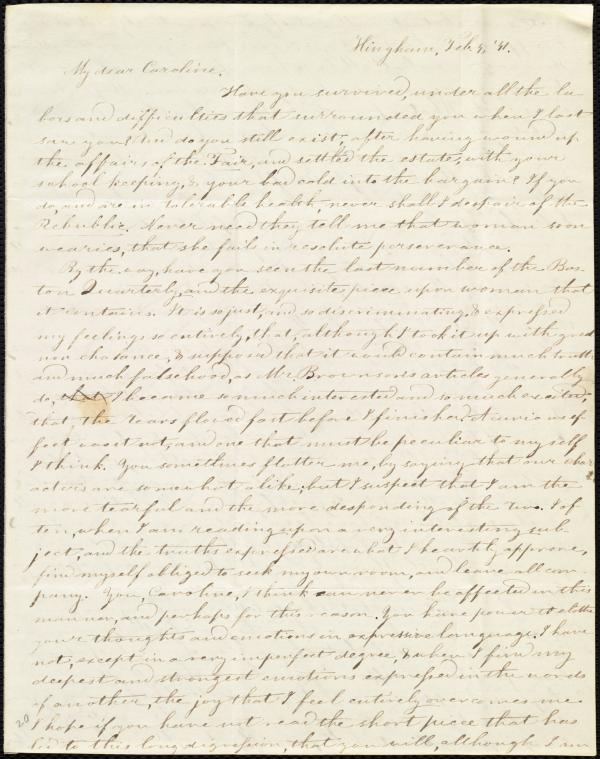 Hingham, Feb. 9, '41.
My dear Caroline.
Have you survived, under all the la-
bors and difficulties that surrounded you when I last
saw you? And do you still exist, after having wound up
the affairs of the Fair, and settled the estate, with your
school keeping, & your bad cold into the bargain? If you
do, and are in tolerable health, never shall I despair of the
Republic. Never need they tell me that woman soon
wearies, that she fails in resolute perseverance.
By the way, have you seen the last number of the Bos-
ton Quarterly, and the exquisite piece upon woman that
it contains. It is so just, and so discriminating, & expressed
my feelings so entirely, that, although I took it up with great
non chalance, & supposed that it would contain much truth
and much falsehood, as Mr. Brownson's articles generally
do, I became so much interested and so much excited,
that, the tears flowed fast before I finished. A curious ef-
fect was it not, and one that must be peculiar to myself
I think. You sometimes flatter me, by saying that our char-
acters are somewhat alike, but I suspect that I am the
more tearful and the more desponding of the two. I of-
ten, when I am reading upon a very interesting sub-
ject, and the truths expressed are what I heartily approve,
find myself obliged to seek my own room, and leave all com-
pany. You, Caroline, I think can never be affected in this
manner, and perhaps for this reason. You have power to clothe
your thoughts and emotions in expressive language. I have
not, except in a very imperfect degree, & when I find my
deepest and strongest emotions expressed in the words
of another, the joy that I feel entirely overcomes me.
I hope if you have not read the short piece that has
led to this long digression, that you will, although I am
20